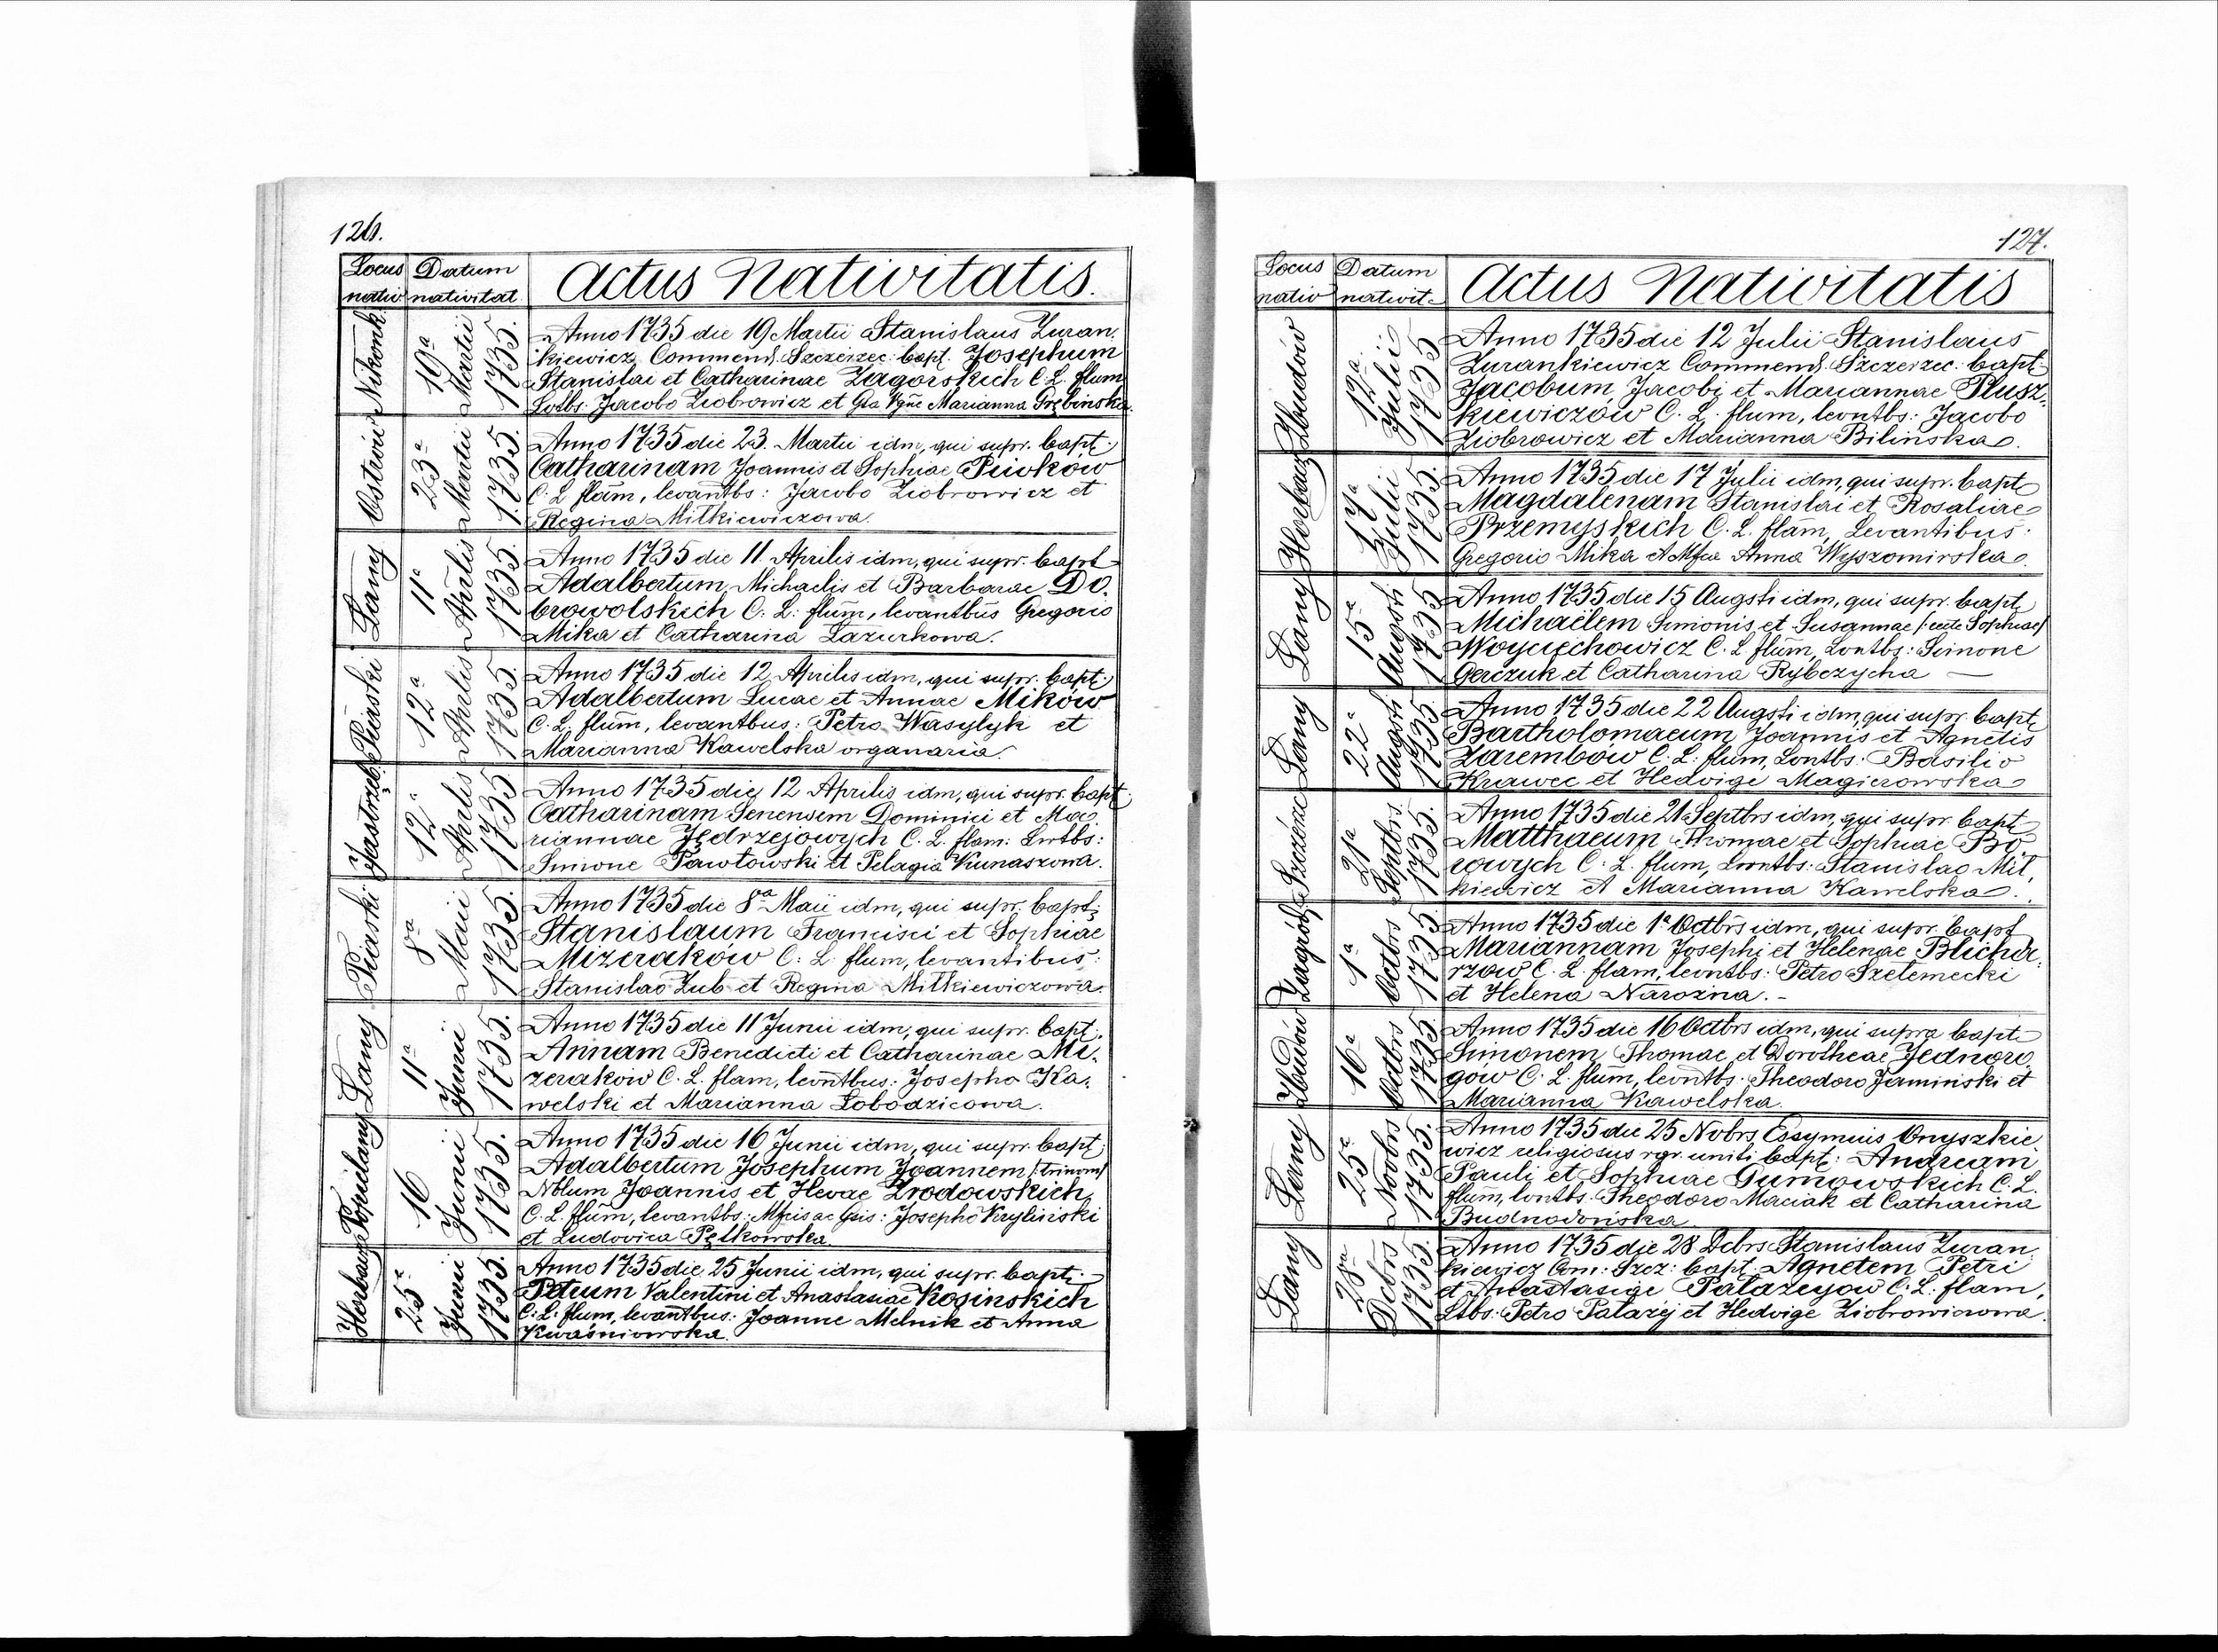 126.
Locus nativ
Datum nativitat.
Actus Nativitatis.
Nikonk.
19ª Martii 1735.
Anno 1735 die 19 Martii Stanislaus Zuran-
kiewicz Commend. Szczerzec: bapt. Josephum
Stanislai et Catharinae Zagorskich C. L. flum
Lvtbs: Jacobo Ziobrowicz et Gsa Vgñe Marianna Grębinska.
Ostrów
23ª Martii 1735.
Anno 1735 die 23. Martii idm, qui supr. bapt:
Catharinam Joannis et Sophiae Piivków
C. L flam, levantbs: Jacobo Ziobrowicz et
Regina Mitkiewiczowa.
Lany
11ª Aprilis 1735.
Anno 1735 die 11. Aprilis idm, qui supr. bapt
Adalbertum, Michaelis et Barbarae Do-
browolskich C: L: flum, levantbus Gregorio
Mika et Catharina Lazurkowa.
Piaski
12ª Aprilis 1735.
Anno 1735 die 12 Aprilis idm, qui supr. bapt:
Adalbertum Lucae et Annae Mików
C. L. flum, levantbus: Petro Wasylyk et
Marianna Kawelska organaria.
Jastrzęb.
12ª Aprilis 1735
Anno 1735 die 12 Aprilis idm, qui supr. bapt:
Catharinam Senensem Dominici et Ma-
riannae Jędrzejowych C. L. flam: Lvtbs:
Simone Pawłowski et Pelagia Kunaszowa.
Piaski
8ª Maii 1735.
Anno 1735 die 8ª Maii idm, qui supr. bapt:
Stanislaum Francisci et Sophiae
Mizeraków C: L. flum, levantibus:
Stanislao Zub et Regina Mitkiewiczowa.
Lany
11ª Junii 1735.
Anno 1735 die 11 Junii idm, qui supr. bapt.
Annam Benedicti et Catharinae Mi-
zeraków C. L. flam, levntbus: Josepho Ka-
welski et Marianna Lobodzicowa.
Popielany
16 Junii 1735.
Anno 1735 die 16 Junii idm, qui supr. bapt:
Adalbertum Josephum Joannem /:trinom/
Nblum Joannis et Hevae Zrodowskich,
C. L. flum, levantbs: Mfcis ac Gsis: Josepho Kryliński
et Ludovica Pętkowska.
Horbacze
25ª Junii 1735.
Anno 1735 die 25 Junii idm, qui supr. bapt:
Petrum Valentini et Anastasiae Kosinskich
C: L: flum, levantbus: Joanne Melnik et Anna
Kwaśniowska.
127.
Locus nativ
Datum nativit.
Actus Nativitatis
Zbudów
12ª Julii 1735
Anno 1735 die 12 Julii Stanislaus
Zurankiewicz Commend. Szczerzec: bapt:
Jacobum, Jacobi et Mariannae Plusz-
kiewiczów C. L. flum, levntbs: Jacobo
Ziobrowicz et Marianna Bilinska.
Horbacz
17ª Julii 1735.
Anno 1735 die 17 Julii idm, qui supr. bapt
Magdalenam Stanislai et Rosaliae
Przemyskich C. L. flam, Levantibus:
Gregorio Mika et Mfca Anna Wyszomirska.
Lany
15ª Augsti 1735
Anno 1735 die 15 Augsti idm, qui supr. bapt
Michaëlem Simonis et Susannae /:recte Sophiae/
Woyciechowicz C. L flum, Lvntbs: Simone
Gerczuk et Catharina Rybczycha —
Lany
22ª Augsti 1735.
Anno 1735 die 22 Augsti idm, qui supr. bapt
Bartholomaeum Joannis et Agnetis
Zarembów C. L. flum, Lvntbs: Basilio
Krawec et Hedvige Magierowska
Szczérzec
21ª Septbrs. 1735.
Anno 1735 die 21 Septbrs idm, qui supr. bapt
Matthaeum Thomae et Sophiae Bo-
rowych C. L. flum, Lvntbs: Stanislao Mit-
kiewicz et Marianna Kawelska.
Zagródki
1ª Octbrs 1735
Anno 1735 die 1ª Octbrs idm, qui supr. bapt
Mariannam Josephi et Helenae Blicha-
rzow C. L. flam, levntbs: Petro Szelemecki
et Helena Narożna. -
Zbudów
16ª Octbrs 1735
Anno 1735 die 16 Octbrs idm, qui supra bapt
Simonem, Thomae et Dorotheae Jednoro-
gów C. L. flum, levntbs: Theodoro Jaminski et
Marianna Kawelska.
Lany
25ª Novbrs 1735.
Anno 1735 die 25 Nvbrs Onyszkie
wicz religiosus rgr. uniti bapt: Andream
Pauli et Sophiae Gumowskich C. L.
flum, lvntbs: Theodoro Maciak et Catharina
Budnodońska
Lany
28ª Dcbrs 1735.
Anno 1735 die 28 Dcbrs Stanislaus Zuran-
kiewicz Com: Szcz: bapt: Agnetem Petri
et Anastasiae Palazejow C: L: flam,
Lvtbs: Petro Palazej et Hedvige Ziobrowiczowa.